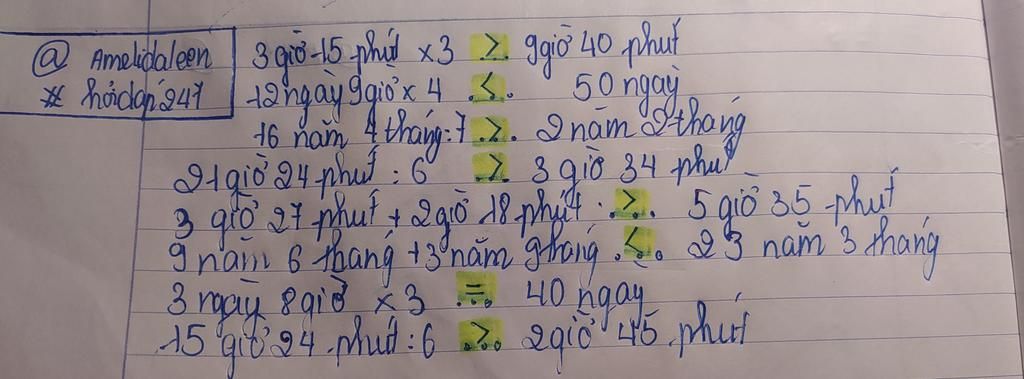 @ Amelidaleen
# hỏidáp247
3 giờ 15 phút x3 .>. 9giờ 40 phút
12ngày 9giờ x 4 .<. 50 ngày
16 năm 4 tháng:7 .>. 2 năm 2 tháng
21giờ 24 phút : 6 .>. 3 giờ 34 phút
3 giờ 27 phút + 2giờ 18 phút .>. 5 giờ 35 phút
9 năm 6 tháng +3 năm 9tháng .<. 23 năm 3 tháng
3 ngày 8giờ x3 .=. 40 ngày
15 giờ 24 phút : 6 .>. 2giờ 45 phút